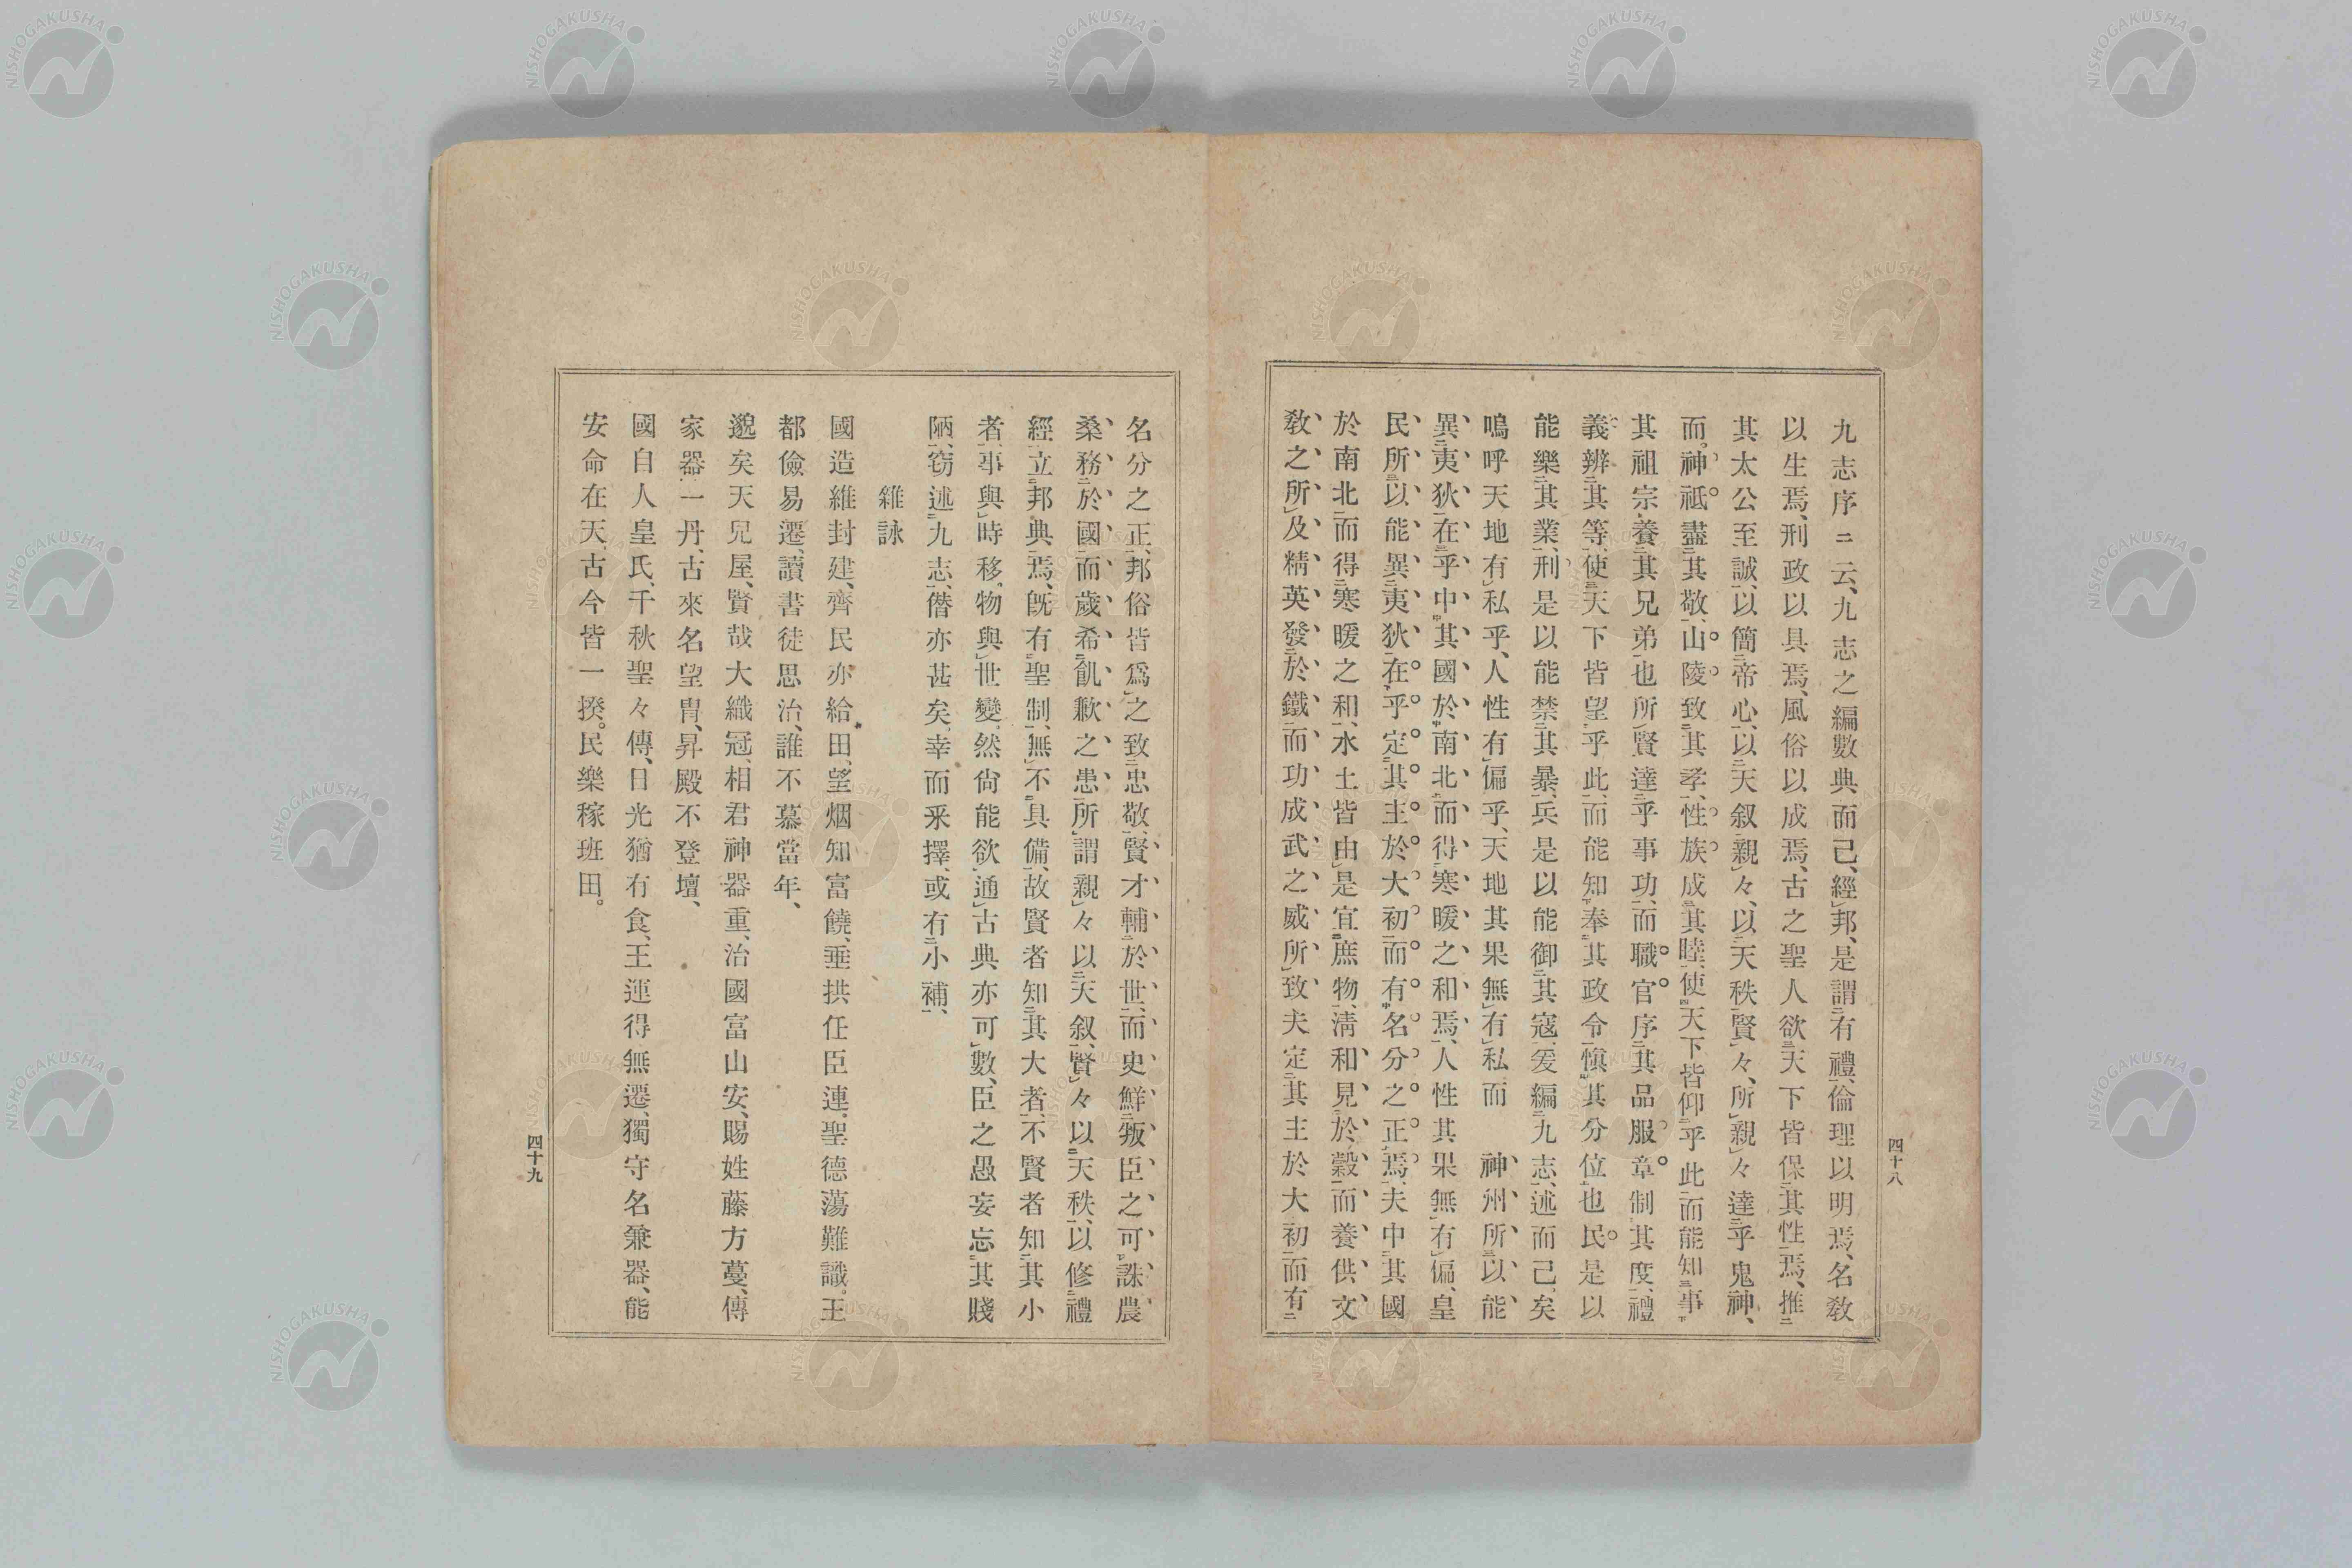 四十八
九志序ニ云、九志之編數典而已、經邦、是謂有禮、倫理以明焉、名敎
以生焉、刑政以具焉、風俗以成焉、古之聖人欲天下皆保其性焉、推
其太公至誠、以簡帝心、以天叙親々、以天秩賢々、所親々達乎鬼神、
而。神祇盡其敬、山陵致其孝、性族成其睦、使天下皆仰乎此而能知事
其祖宗養其兄弟也所賢達乎事功、而職官序其品服章制其度、禮
義辨其等、使天下皆望乎此、而能知奉其政令愼其分位也民是以
能樂其業、刑是以能禁其暴、兵是以能御其寇、爰編九志、述而已矣
嗚呼天地有私乎、人性有偏乎、天地其果無有私而 神州所以能
異夷狄在乎中其國於南北而得寒暖之和焉、人性其果無有偏、皇
民所以能異夷狄在乎定其主於大初而有名分之正焉、夫中其國
於南北而得寒暖之和、水土皆由是宜庶物、淸和見於穀而養供、文
敎之所及精英發於鐵而功成武之威所致夫定其主於大初而有
名分之正、邦俗皆爲之致忠敬、賢才輔於世、而史鮮叛臣之可誅農
桑務於國而歲希飢歉之患所謂親々以天叙、賢々以天秩、以修禮
經立邦典焉、旣有聖制、無不具備、故賢者知其大者、不賢者知其小
者、事與時移、物與世變、然尙能欲通古典亦可數、臣之愚妄忘其賤
陋、窃述九志、僭亦甚矣。幸而釆擇、或有小補、
雜詠
國造維封建、齊民亦給田、望烟知富饒、垂拱任臣連。聖德蕩難識。王
都儉易遷、讀書徒思治、誰不慕當年、
邈矣天兒屋、賢哉大織冠、相君神器重、治國富山安、賜姓藤方蔓、傳
家器一丹、古來名望冑、昇殿不登壇、
國自人皇氏、千秋聖々傳、日光猶有食、王運得無遷、獨守名兼器、能
安命在天、古今皆一揆。民樂稼班田。
四十九